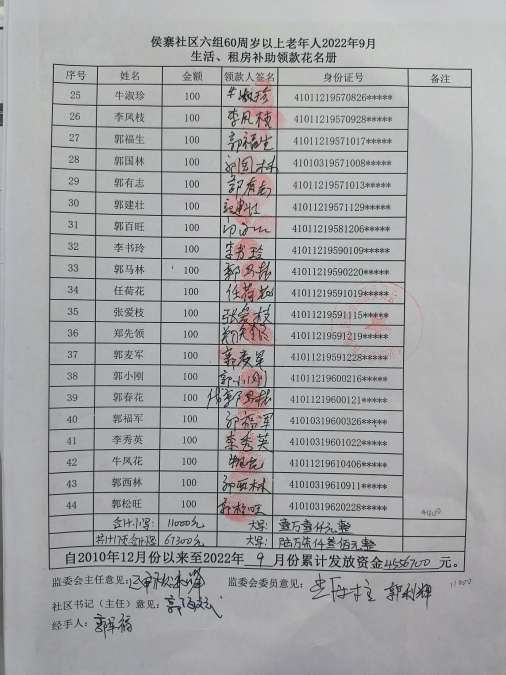 侯寨社区六组60周岁以上老年人2022年9月
生活、租房补助领款花名册
序号 姓名 金额 领款人签名 身份证号 备注
25 牛淑珍 100 牛淑珍 41011219570826*****
26 李凤枝 100 李凤枝 41011219570928*****
27 郭福生 100 郭福生 41011219571017*****
28 郭国林 100 郭国林 41010319571008*****
29 郭有志 100 郭有志 41011219571013*****
30 郭建壮 100 郭建壮 41011219571129*****
31 郭百旺 100 41011219581206*****
32 李书玲 100 李书玲 41011219590109*****
33 郭马林 100 郭马林 41011219590220*****
34 任荷花 100 任荷花 41011219591019*****
35 张爱枝 100 张爱枝 41011219591115*****
36 郑先领 100 郑先领 41011219591219*****
37 郭麦军 100 郭麦军 41011219591228*****
38 郭小刚 100 郭小刚 41011219600216*****
39 郭春花 100 41011219600121*****
40 郭福军 100 郭福军 41010319600326*****
41 李秀英 100 李秀英 41010319601022*****
42 牛凤花 100 41011219610406*****
43 郭西林 100 郭西林 41010319610911*****
44 郭松旺 100 郭松旺 41010319620228*****
合计小写: 11000元 大写: 壹万壹仟元整
67300元 大写: 陆万柒仟叁佰元整
自2010年12月份以来至2022年 9 月份累计发放资金4556700元。
监委会主任意见: 监委会委员意见: 郭利辉 11000
社区书记(主任)意见:
经手人: 郭军福